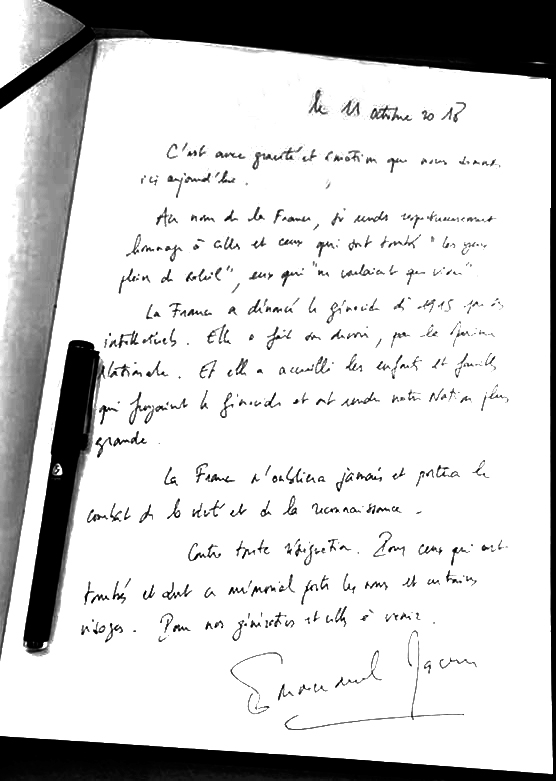 le 11 octobre 2018
C'est avec gravité et émotion que nous sommes
ici aujourd'hui.
Au nom de la France, je rends respectueusement
hommage à celles et ceux qui sont tombés "les yeux
plein de soleil", eux qui "ne voulaient que vivre".
La France a dénoncé le génocide de 1915 par ses
intellectuels. Elle a fait son devoir, par la Marine
Nationale. Et elle a accueilli les enfants et familles
qui fuyaient le génocide et ont rendu notre Nation plus
grande.
La France n'oubliera jamais et portera le
combat de la vérité et de la reconnaissance.
Contre toute résignation. Pour ceux qui sont
tombés et dont ce mémorial porte les noms et certains
visages. Pour nos générations et celles à venir.
Emmanuel Macron